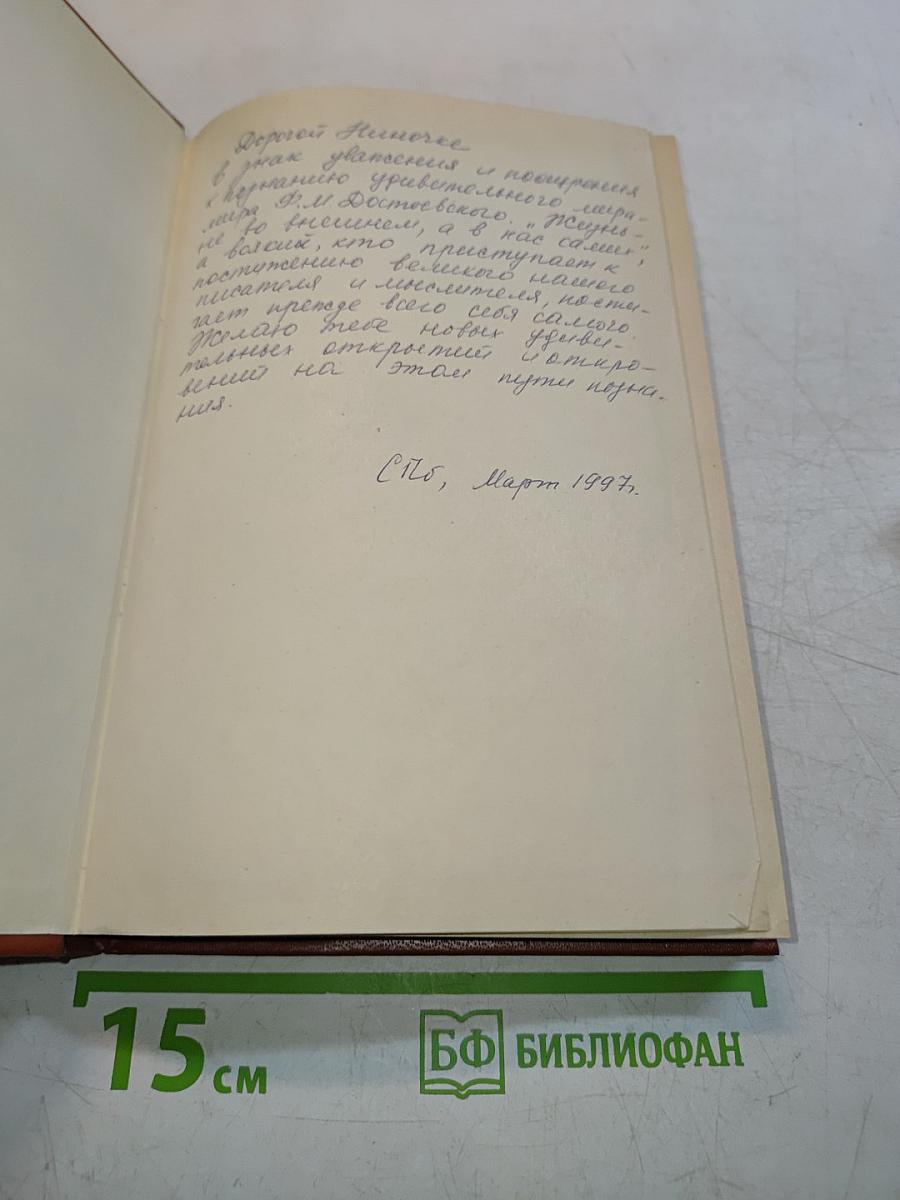 Дорогой Ниночке
в знак уважения и поощрения
к познанию удивительного мира-
мира Ф.М. Достоевского. "Жизнь-
не во внешнем, а в нас самих",
и всякий, кто приступает к
постижению великого нашего
писателя и мыслителя, пости-
гает прежде всего себя самого.
Желаю тебе новых удиви-
тельных открытий и откро-
вений на этом пути позна-
ния.
СПб, Март 1997г.
15 см
БФ БИБЛИОФАН